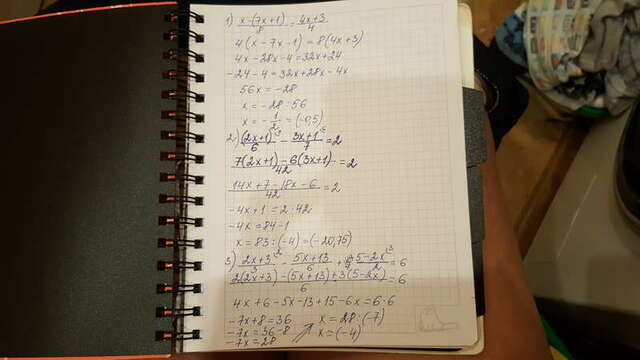 1) x-(7x+1)/8 = 4x+3/4
4(x-7x-1)=8(4x+3)
4x-28x-4=32x+24
-24-4=32x+28x-4x
56x=-28
x=-28:56
x=-1/2=(-0,5)
2) (2x+1)/6 - 3x+1/7 =2
7(2x+1)-6(3x+1)/42 =2
14x+7-18x-6/42 =2
-4x+1=2·42
-4x=84-1
x=83:(-4)=(-20,75)
3) 2x+3/3 - 5x+13/6 + 5-2x/2 =6
2(2x+3)-(5x+13)+3(5-2x)/6 =6
4x+6-5x-13+15-6x=6·6
-7x+8=36
-7x=36-8
-7x=28
x=28:(-7)
x=(-4)